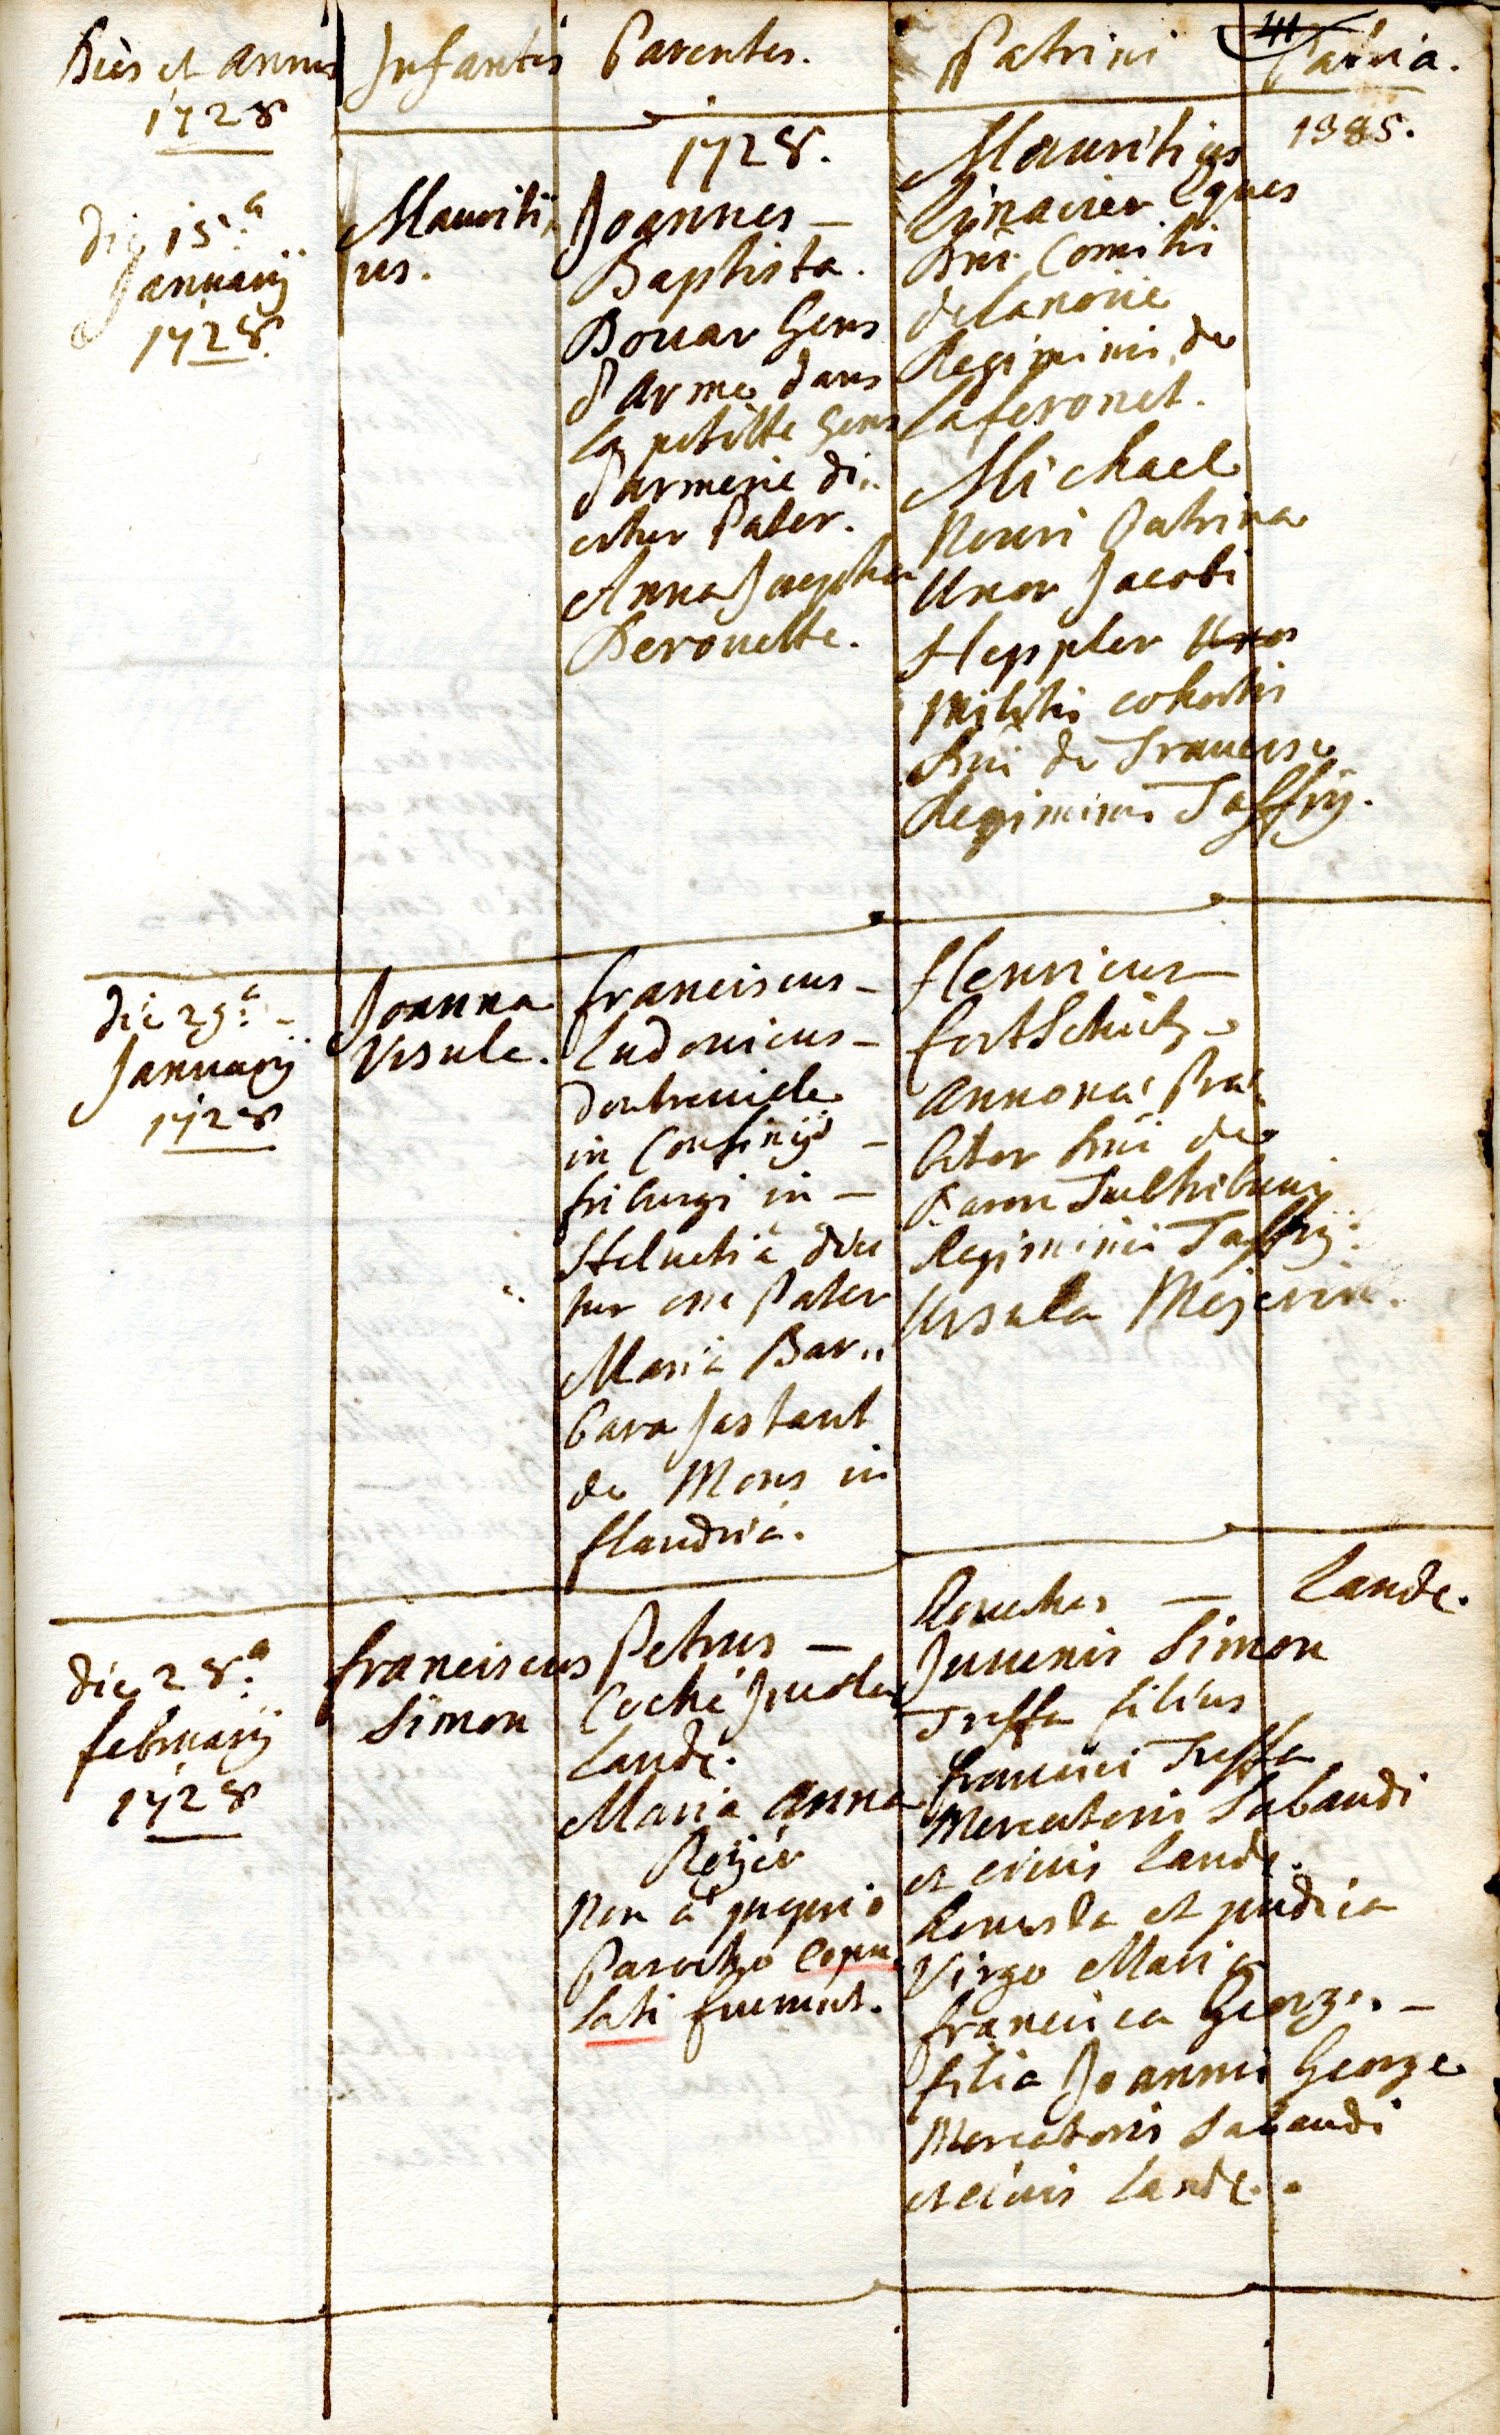 Dies et annus
1728
Infantes
Parentes.
Patrini
Patria.
1385.
1728.
die 15.a
Januarij
1728.
Mauriti
us.
Joannes –
Baptista.
Bouar Gens
d'Arme dans
la petitte Gens
d'armerie di..
citur Pater.
Anna Josepha
Deronette.
Mauritius
Linacier Eques
Dni Comitis
delanoue
Regiminis de
Laferonet.
Michael
Nouri Patrina
Uxor Jacobi
Heppler
Militis cohortis
Dni de Traverse
Regiminis Taffin.
die 29.a
Januarij
1728
Joanna
Ursule.
Franciscus –
Ludovicus –
Doutreville
in Confinijs –
friburgi in –
Helvetiâ dici
tur esse Pater
Maria Bar..
bara Jastant
de Mons in
flandriâ.
Henricus –
fortSchitz
annona
bitor Dni de
Baron
Regiminis Taffin.
Ursula Meserin.
die 28.a
februarij
1728
Franciscus
Simon
Petrus –
Coché Incola
Land.
Maria Anna
Reijer
Non à proprio
Parocho Copu
lati fuerunt.
Honestus –
Juvenis Simon
Treffa filius
Francisci Treffa
Mercatoris Sabaudi
et civis Land.
Honesta et pudica
Virgo Maria
Francisca George –
filia Joannis George
Mercatoris Sabaudi
et civis Land.
Land.